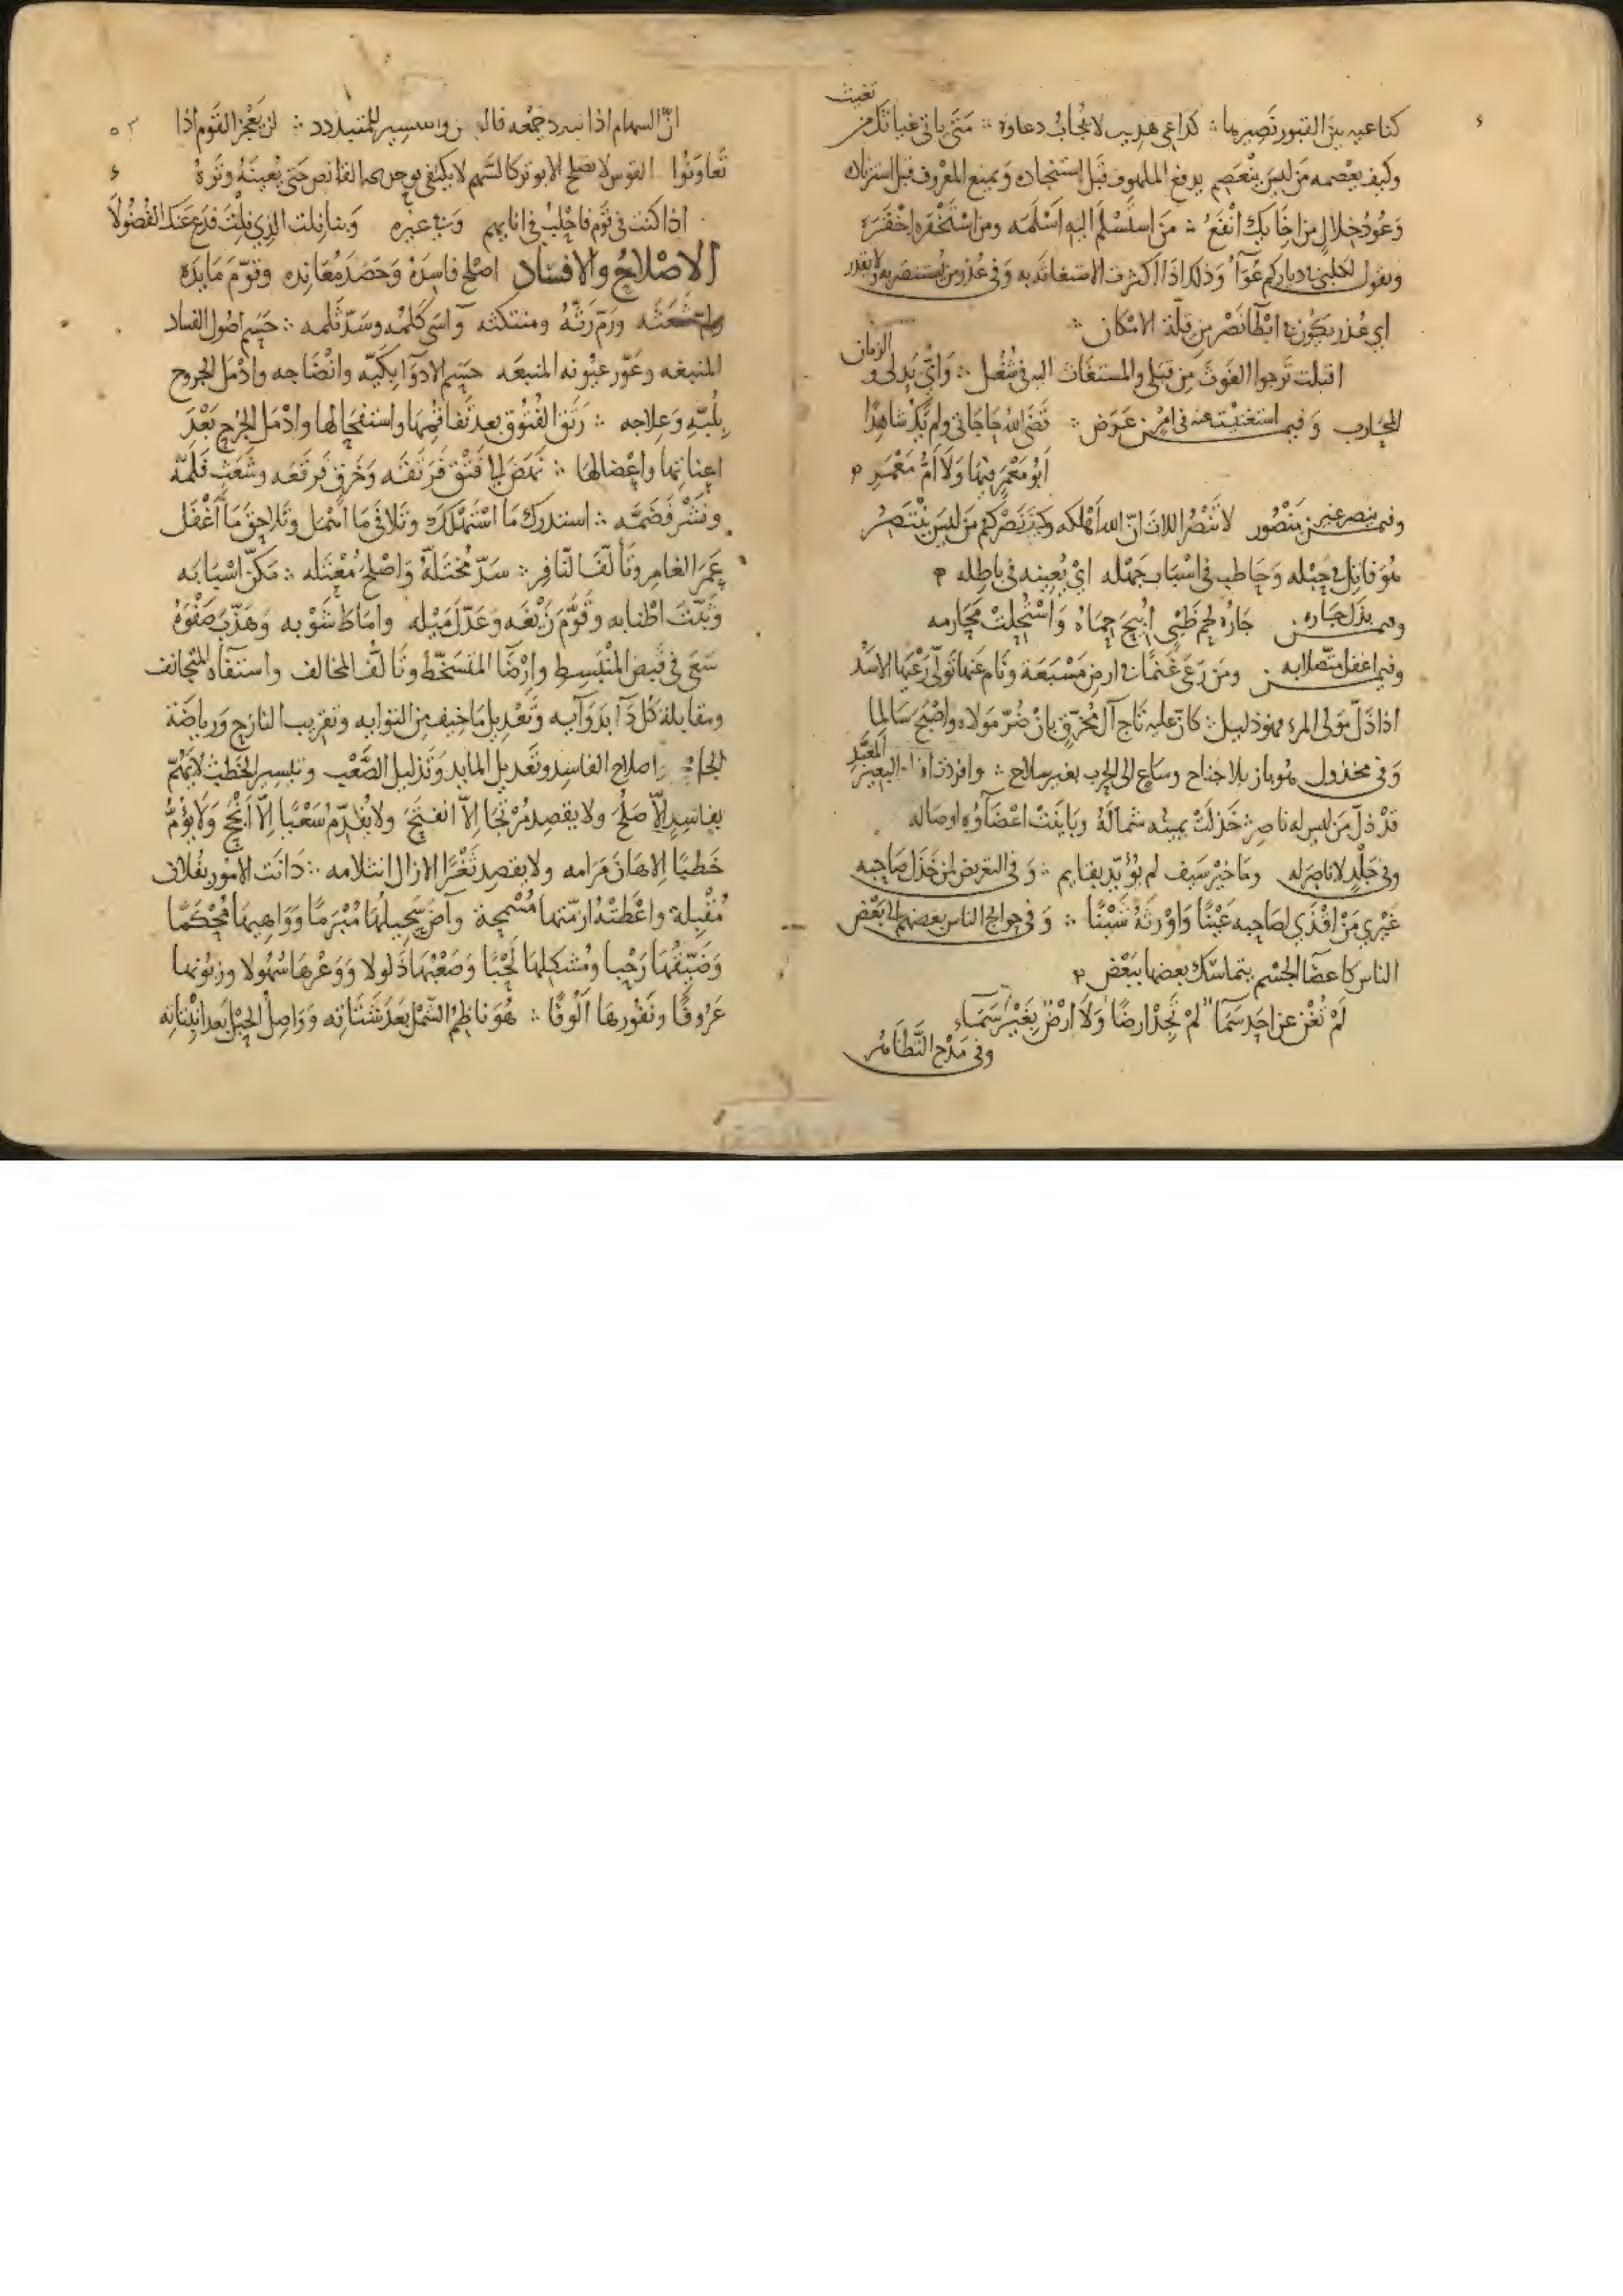 كناعيه بين القبور نصيرها ∴ كداعي هديب لا يجاب دعاوه ∴ متى ياتي غياثك من تغيث
وكيف يعصمه من ليس ينعصم يدفع الملهوف قبل استنجاده ويمنع المعروف قبل
وعود خلال من اخابك انفع ∴ من استسلم اليه اسلمه ومن استخفره اخفره
ويقول لحلبي دياركم وذلك اذا اكثرت الاستغاثة به وفي عذر من يستنصر به ولا يقدر
اي عذر يكون في ابطا نصر من قلة الامكان ∴
اقبلت ترجوا الغوث من قبلي والمستغاث اليه في شغل ∴
المحارب وفيمن استغنيت عنه في امر عوض ∴ قضى الله حاجاتي ولم يك شاهدا
ابو معمر فيها ولا ام معمر
وفيمن ينصر غير منصور لا تنصر اللات ان الله اهلكه وكيف نصركم من ليس ينتصر
هو فاتل في حبله وحاطب في اسباب جهله اي يعينه في باطله
وفيمن يذل جاره جاره لحم ظبي ابيح حماه واستحلت محارمه
وفيمن اغفل متصلا به ومن رعى غنما في ارض مسبعة ونام عنها تولى رعيها الاسد
اذا ذل مولى المرء فهو ذليل ∴ كان عليه تاج آل محرق بان ضر مولاه واصبح سالما
وفي مخذول هو باز بلا جناح وساع الى الحرب بغير سلاح ∴ وافردت افراد البعير المعبد
قد ذل من ليس له ناصر خذلت يمينه شماله وباينت اعضاؤه اوصاله
وفي جلد لا ناصر له وما خير سيف لم يؤيد بقايم ∴ وفي التعريض لمن خذل صاحبه
غيري من اقذي لصاحبه عينا واورثه شينا ∴ وفي حوايج الناس بعضهم الى بعض
الناس كاعضا الجسم يتماسك بعضها ببعض
لم تغن عن احد سما لم تجد ارضا ولا ارض بغير سماء
وفي مدح التظاهر
ان السهام اذا لم يرد جمعه للمتبدد ∴ لن يعجز القوم اذا
تعاونوا القوس لا يصلح الا بوتر كالسهم لا يكتفي القانص حتى يعينه وتره
اذا كنت في قوم فاحلب في انايهم وبنا نلت الذي نلت فدع عنك الفضولا
الاصلاح والافساد اصلح فاسده وحصد معانده وقوم مايده
ولم شعثه ورم رثه ومنتكثه وآسى كلمه وسد ثلمه ∴ حسم اصول الفساد
المنبغه وعور عيونه المنبعه حسم الادوا بكيه وانضاجه وادمل الجروح
وعلاجه ∴ رتق الفتوق بعد تفاقمها واستفحالها وادمل الجرح بعد
واعضالها ∴ نهض لها فتق فرتقه وخرق فرقعه وشعث فلمه
ونشر فضمه ∴ استدرك ما استهلك وتلافى ما اهمل وتلاحق ما اغفل
عمر الغامر وتالف النافر ∴ سد مختله واصلح معتله ∴ مكن اسبابه
وثبت اطنابه وقوم زيغه وعدل ميله واماط شوبه وهذب صفوه
سعى في قبض المنبسط وارضا المتسخط وتالف المخالف واستفاه المتجانف
ومقابلة كل دآ بدوآيه وتعديل ما خيف من التوايه وتقريب النازح ورياضة
الجامح اصلاح الفاسد وتعديل المايد وتذليل الصعب وتيسير الخطب لا يهتم
بفاسد الا صلح ولا يقصد مرتجا الا انفتح ولا يقدم سعيا الا انجح ولا يؤم
خطبا الا هان مرامه ولا يقصد ثغرا الا زال انثلامه ∴ دانت الامور بفلان
مقبلة واعطته ازمتها مسمحة وآض سحيلها مبرما وواهيها محكما
وضيقها رحبا ومشكلها لحبا وصعبها ذلولا ووعرها سهولا وزبونها
عروفا ونفورها الوفا ∴ هو ناظم الشمل بعد شتاته وواصل الحبل بعد انبتاته